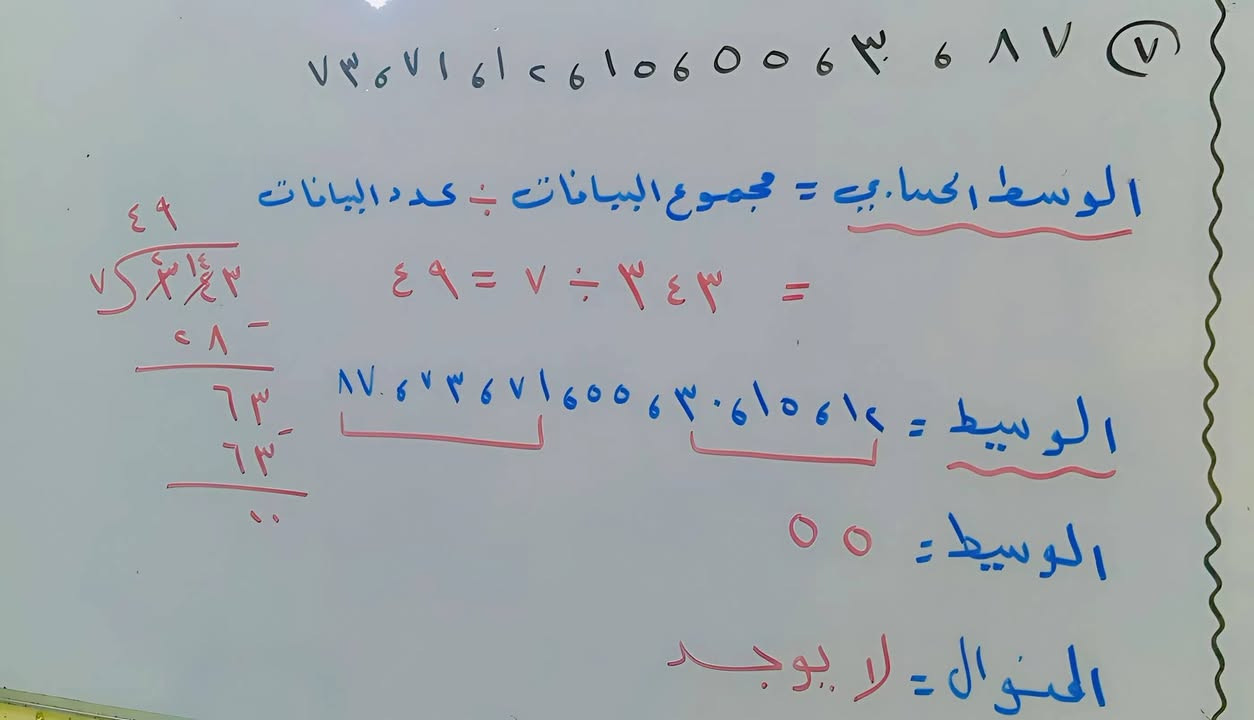 (٧) ٨٧ ، ٣٠ ، ٥٥ ، ١٥ ، ١٢ ، ٧١ ، ٧٣
الوسط الحسابي = مجموع البيانات ÷ عدد البيانات
= ٣٤٣ ÷ ٧ = ٤٩
الوسيط = ١٢ ، ١٥ ، ٣٠ ، ٥٥ ، ٧١ ، ٧٣ ، ٨٧
الوسيط = ٥٥
المنوال = لا يوجد
٤٩
٣٤٣ ٧
٢٨ −
٦٣
٦٣ −
٠٠